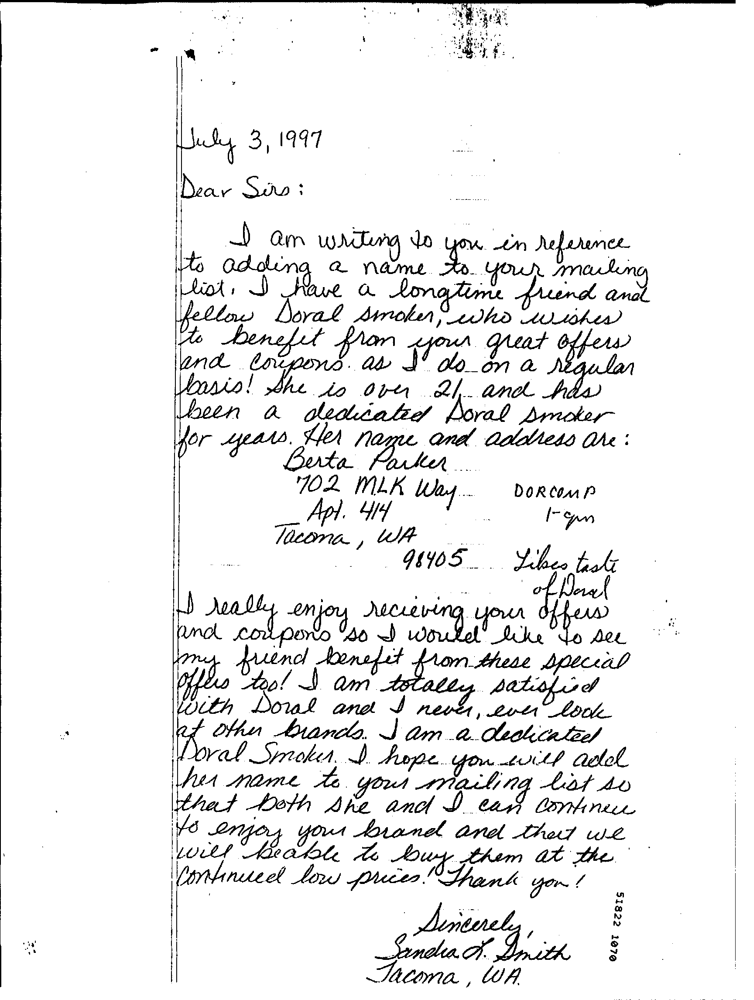 July 3, 1997
Dear Sirs:
I am writing to you in reference
to adding a name to your mailing
list. I have a longtime friend and
fellow Doral smoker, who wishes
to benefit from your great offers
and coupons as I do on a regular
basis! She is over 21 and has
been a dedicated Doral smoker
for years. Her name and address are:
Berta Parker
702 MLK Way
Apt. 414
Tacoma, WA
98405
DORCOMP
Likes taste
of Doral
I really enjoy recieving your offers
and coupons so I would like to see
my friend benefit from these special
offers too! I am totally satisfied
with Doral and I never, ever look
at other brands. I am a dedicated
Doral Smoker. I hope you will add
her name to your mailing list so
that both she and I can continue
to enjoy your brand and that we
will beable to buy them at the
continued low prices! Thank you!
Sincerely,
Sandra L. Smith
Tacoma, WA.
51822 1070